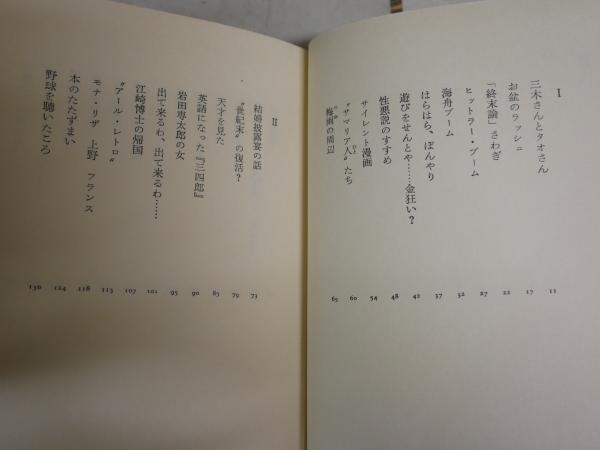 I
三木さんとタオさん 11
お盆のラッシュ 17
「終末論」さわぎ 22
ヒットラー・ブーム 27
海舟ブーム 32
はらはら、ぼんやり 37
遊びをせんとや……金狂い？ 42
性悪説のすすめ 48
サイレント漫画 54
〝サマリア人〟たち 60
〝梅雨〟の周辺 65
II
結婚披露宴の話 73
〝世紀末〟の復活？ 79
天才を見た 83
英語になった『三四郎』 90
岩田専太郎の女 95
出て来るわ、出て来るわ…… 101
江崎博士の帰国 107
〝アール・レトロ〟 113
モナ・リザ 上野 フランス 118
本のたたずまい 124
野球を聴いたころ 130